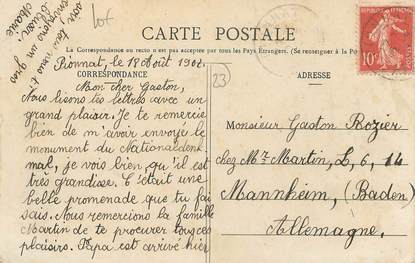 CARTE POSTALE
La Correspondance au recto n'est pas acceptée par tous les Pays Étrangers. (Se renseigner à la Po
CORRESPONDANCE
ADRESSE
REPUBLIQUE FRANÇAISE
10
23
18 Août
Mon cher Gaston,
Nous lisons tes lettres avec un
grand plaisir. Je te remercie
bien de m'avoir envoyé le
monument du Nationaldenk
mal, je vois bien qu'il est
très grandiose. C'était une
belle promenade que tu fai
sais. Nous remercions la famille
Martin de te procurer tous ces
plaisirs. Papa est arrivé hier
soir,
envoyons un gros
Monsieur Gaston Rozier
chez Mr Martin, L, 6, 14
Mannheim, (Baden)
Allemagne.